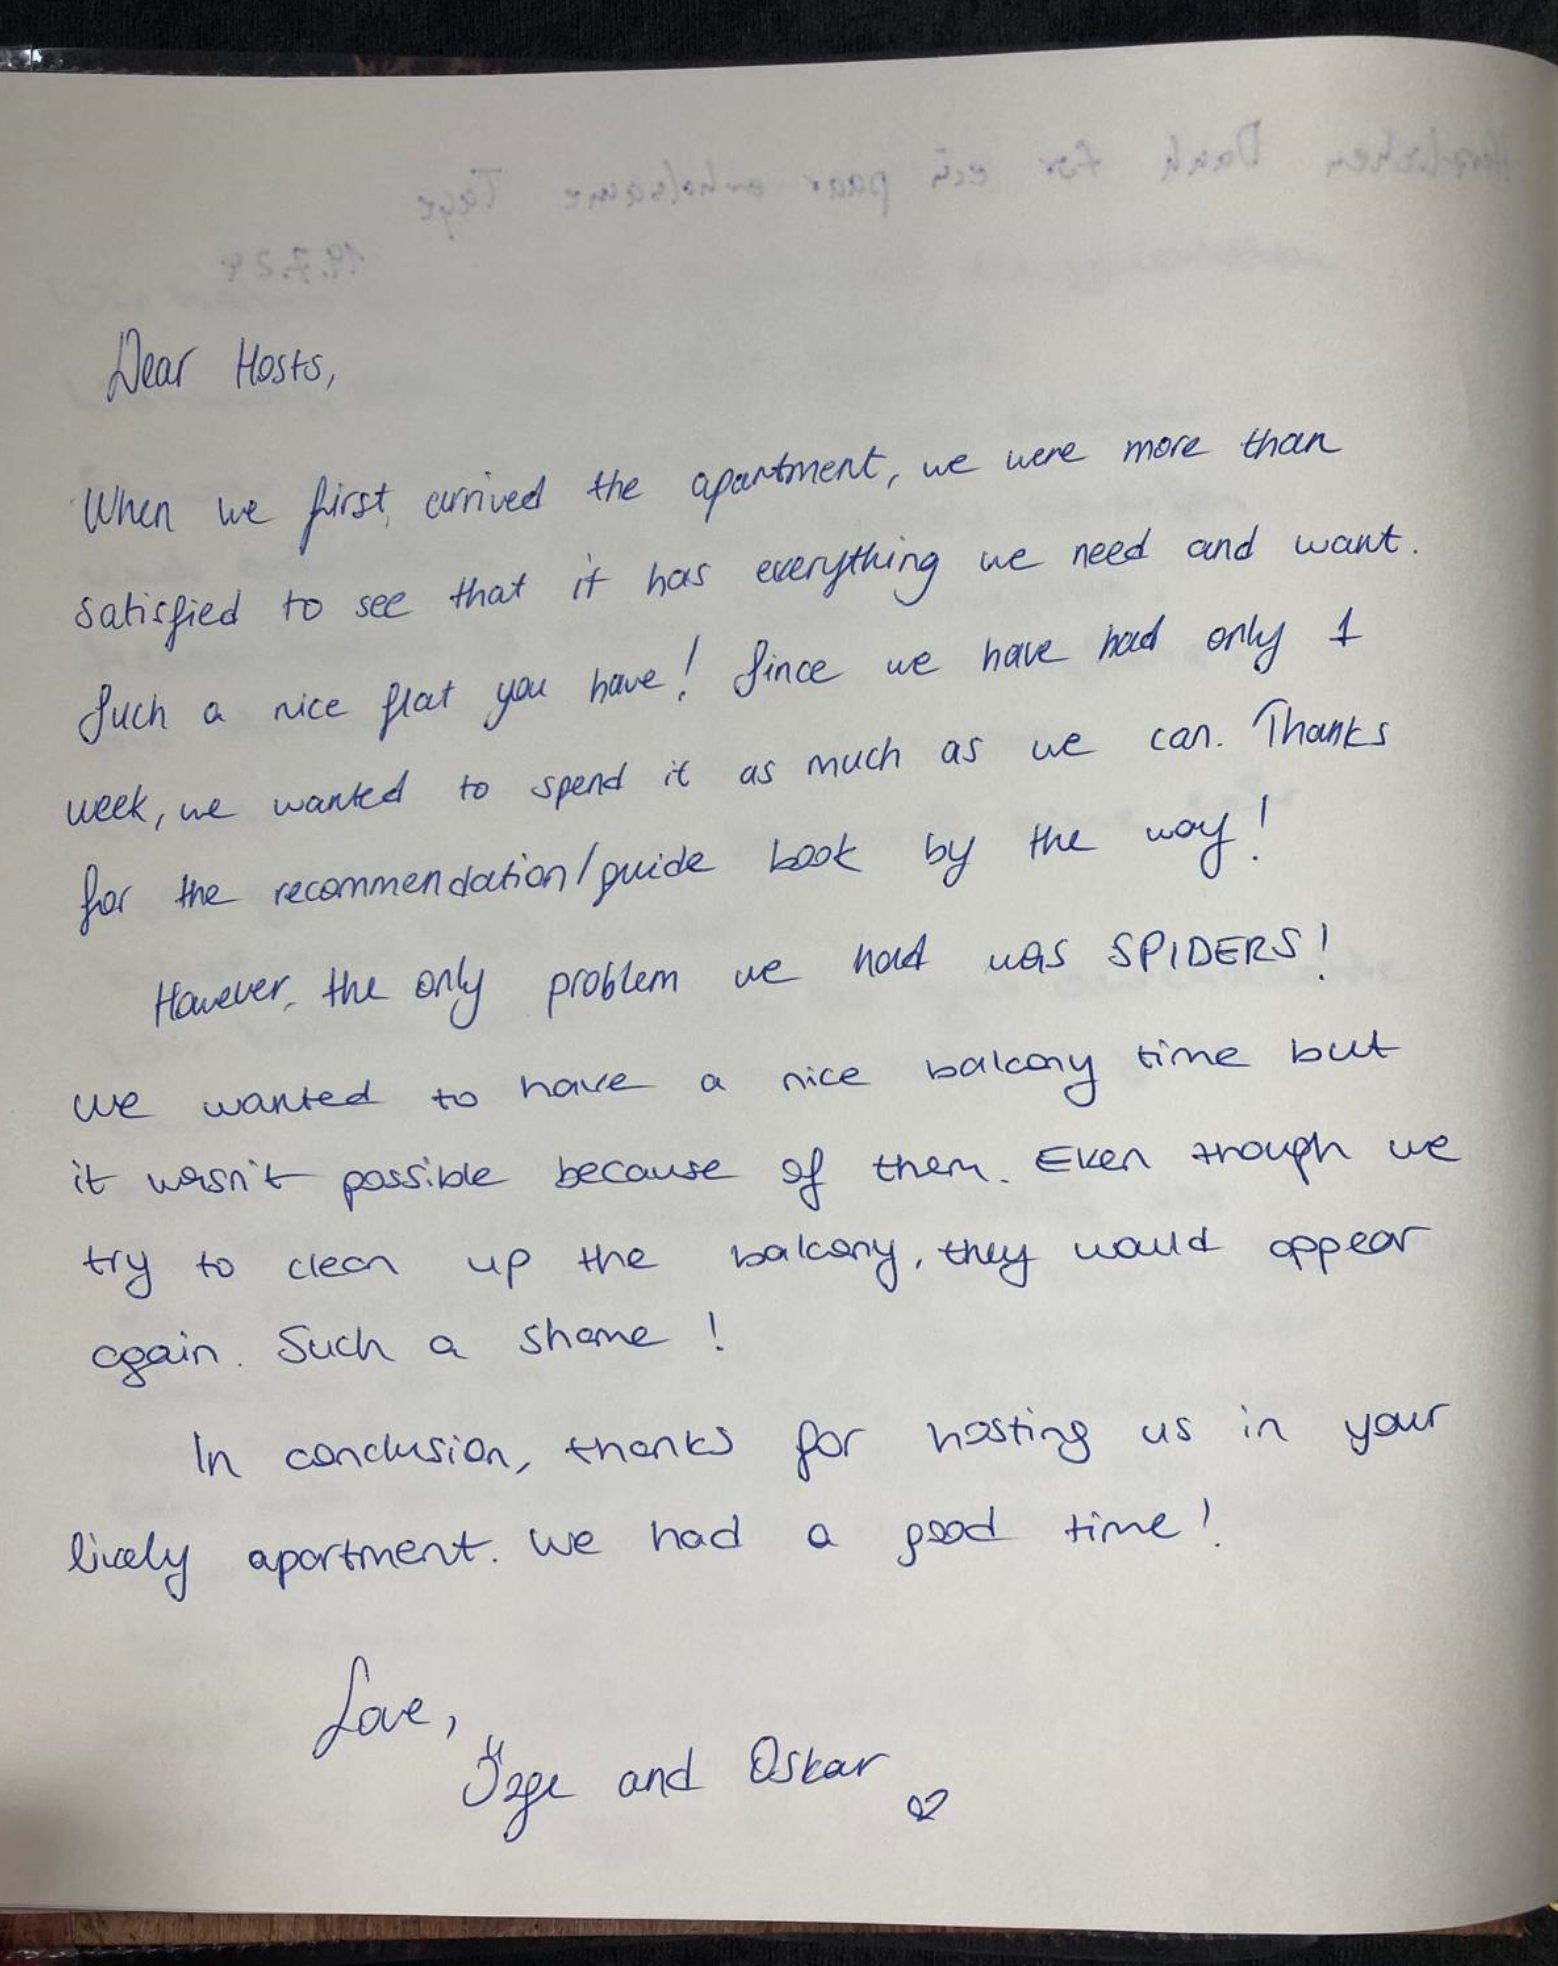 Herzlichen Dank für ein paar erholsame Tage
19.7.24
Dear Hosts,
When we first, arrived the apartment, we were more than
satisfied to see that it has everything we need and want.
Such a nice flat you have! Since we have had only 1
week, we wanted to spend it as much as we can. Thanks
for the recommendation/guide book by the way!
However, the only problem we had was SPIDERS!
We wanted to have a nice balcony time but
it wasn't possible because of them. Even though we
try to clean up the balcony, they would appear
again. Such a shame!
In conclusion, thanks for hosting us in your
lively apartment. We had a good time!
Love,
Özge and Oskar